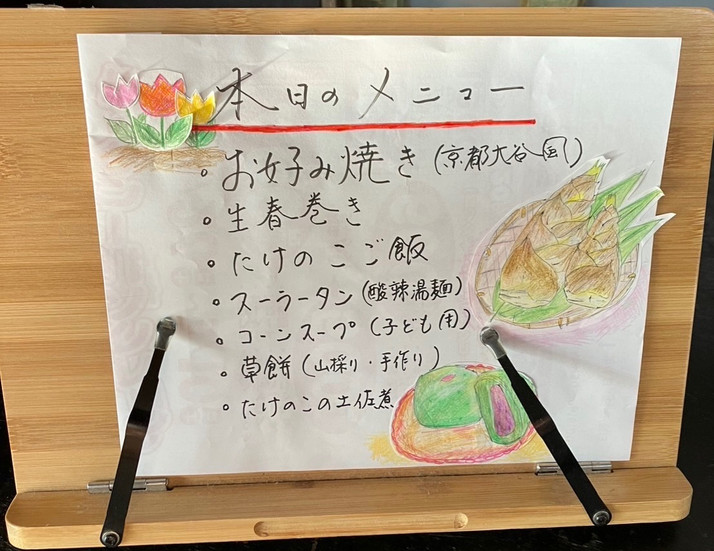 本日のメニュー
• お好み焼き(京都大谷風)
• 生春巻き
• たけのこご飯
• スーラータン(酸辣湯麺)
• コーンスープ(子ども用)
• 草餅(山採り・手作り)
• たけのこの土佐煮